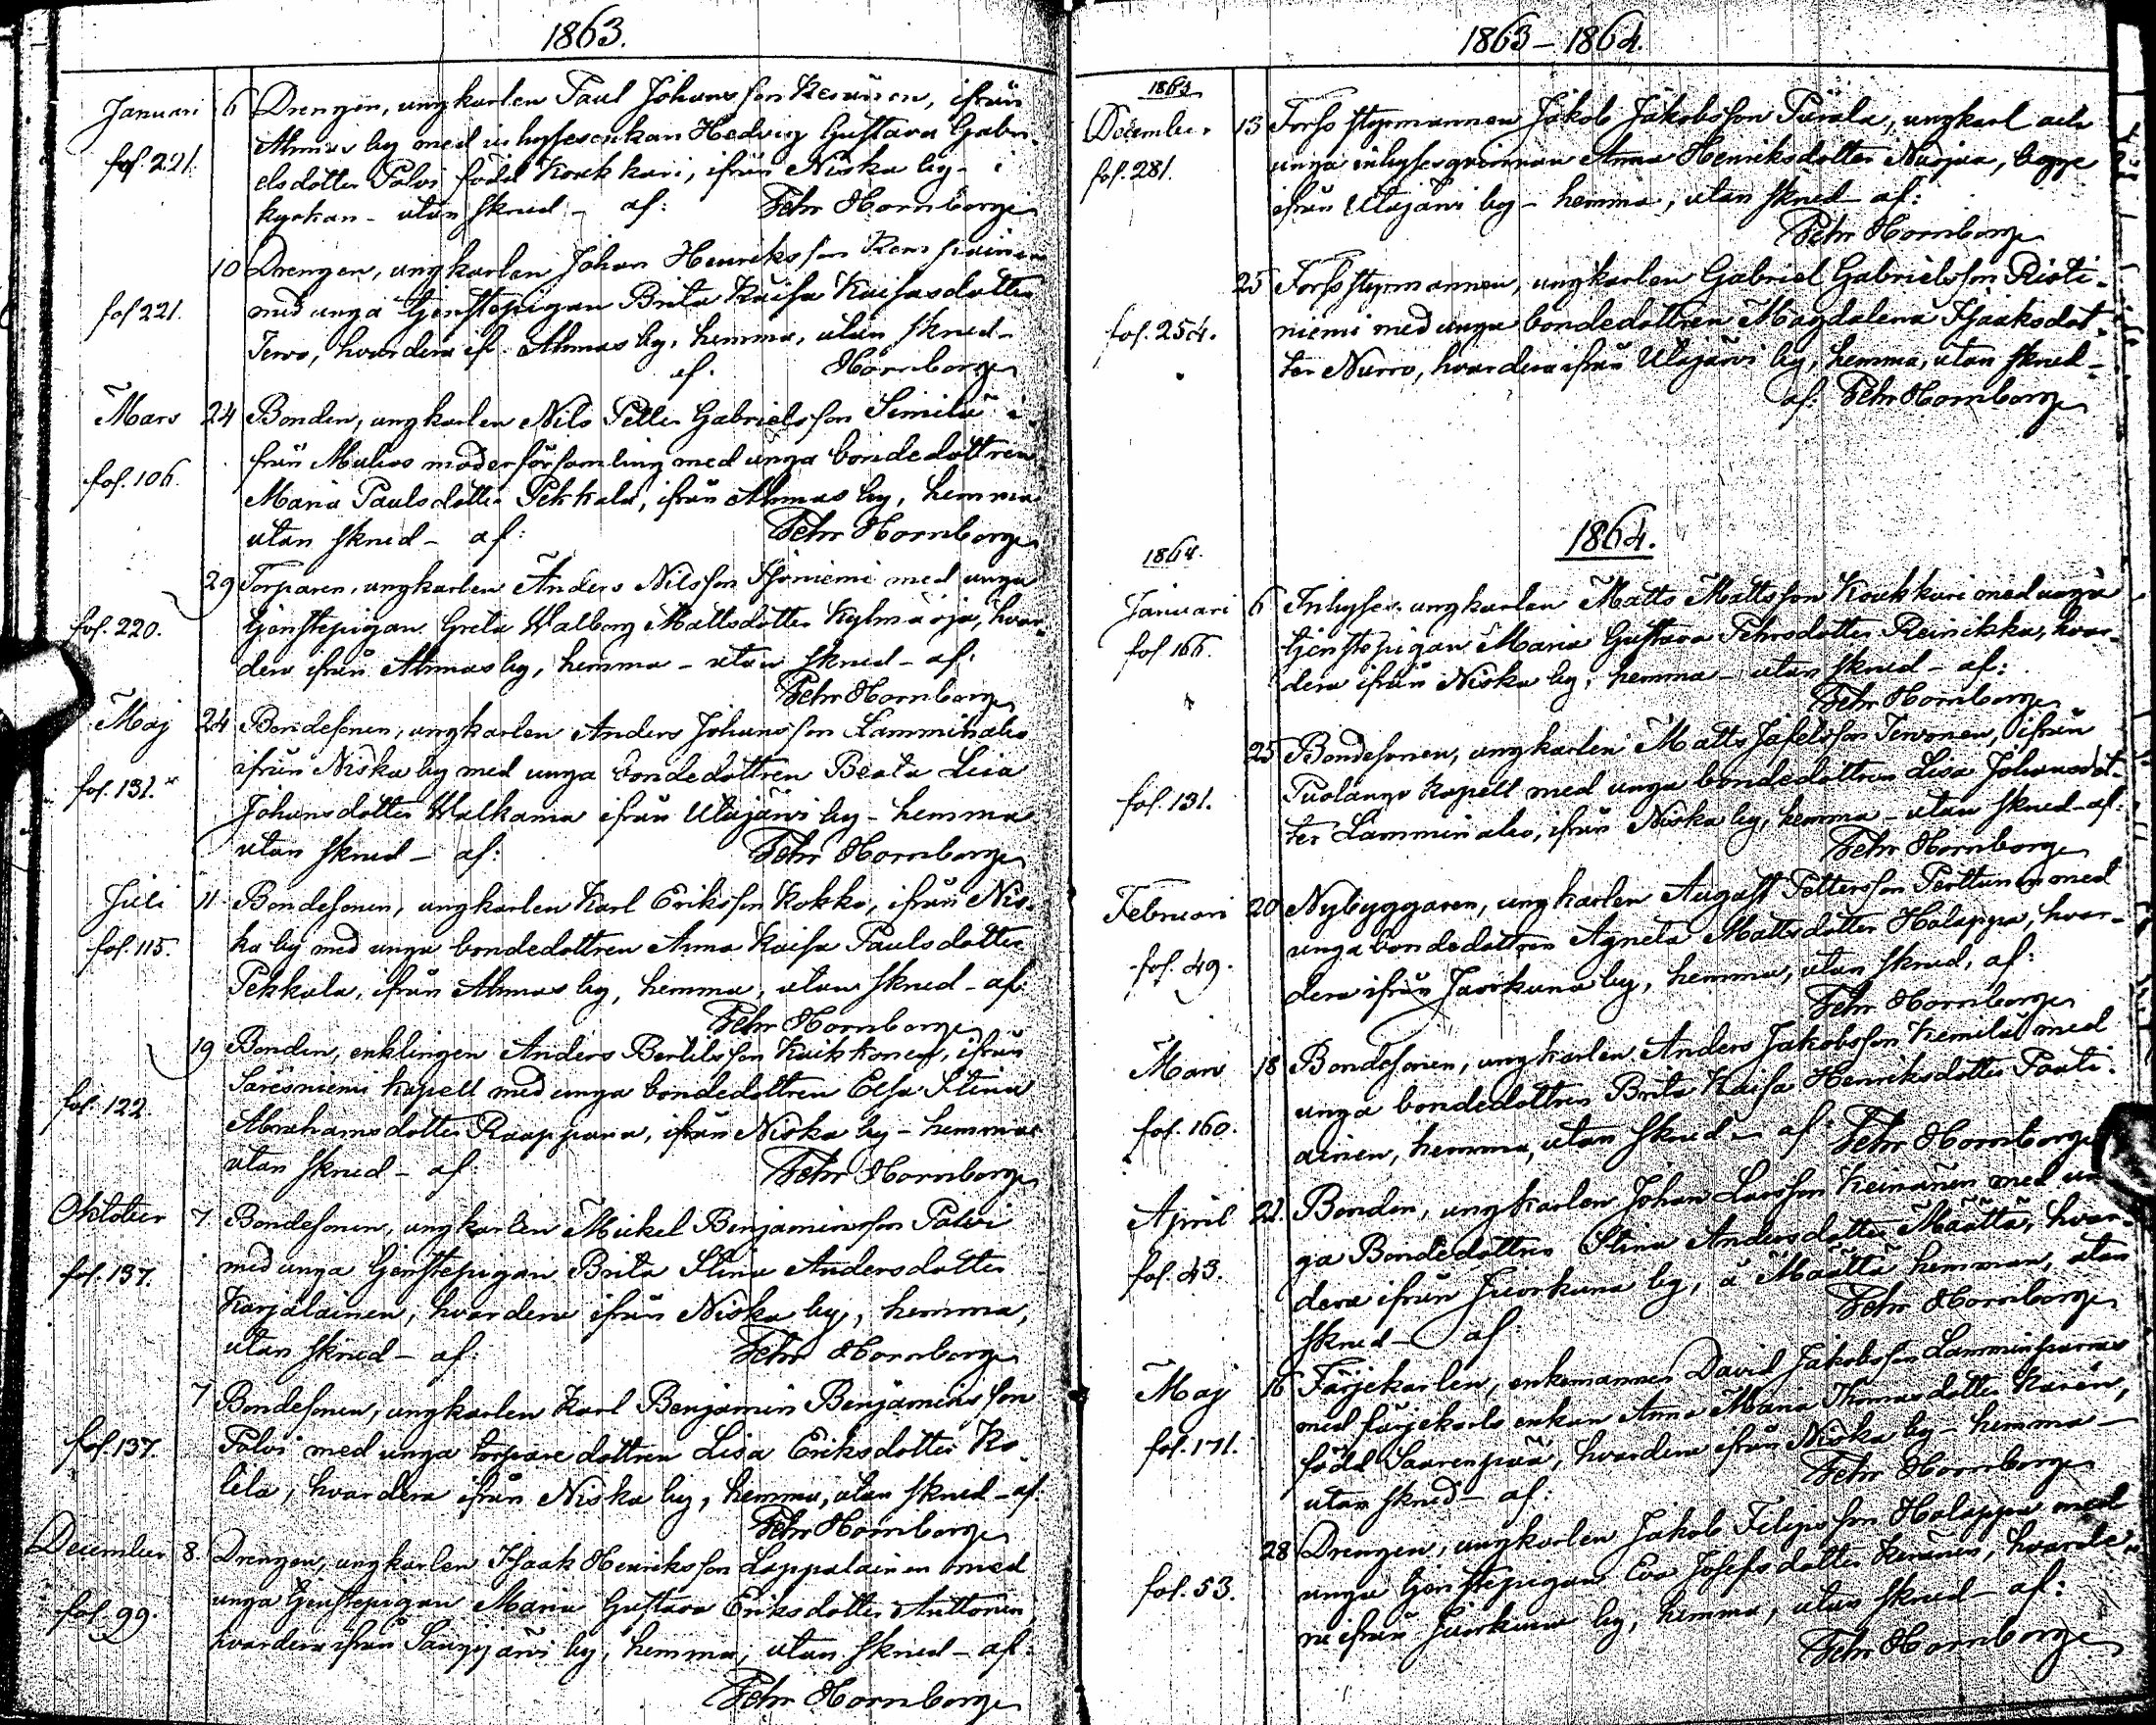 1863.
Januari 6 Drengen, ungkarlen Paul Johansson Kesänen, ifrån
Ahmas by med inhysesenkan Hedvig Gustava Gabri-
fol. 221. elsdotter Polvi född Koukkari, ifrån Niska by - i
kyrkan - utan skrud - af: Pehr Hornborg
10 Drengen, ungkarlen Johan Henriksson Kemppainen
fol 221. med unga tjenstepigan Brita Kaisa Kaisasdotter
Tervo, hvardera if. Ahmas by, hemma, utan skrud -
af. Hornborg
Mars 24 Bonden, ungkarlen Nils Petter Gabrielsson Similä i-
från Muhos moderförsamling med unga bondedottren
fol. 106. Maria Paulsdotter Pekkala, ifrån Ahmas by, hemma
utan skrud - af: Pehr Hornborg
29 Torparen, ungkarlen Anders Nilsson Isoniemi med unga
fol. 220. tjenstepigan Greta Walborg Mattsdotter Kylmäoja, hvar-
dera ifrån Ahmas by, hemma - utan skrud - af:
Pehr Hornborg
Maj 24 Bondesonen, ungkarlen Anders Johansson Lamminaho
ifrån Niska by med unga bondedottren Beata Lisa
fol. 131. Johansdotter Walkama ifrån Utajärvi by - hemma
utan skrud - af: Pehr Hornborg
Juli 11 Bondesonen, ungkarlen Karl Eriksson Kokko, ifrån Nis-
fol. 115. ka by med unga bondedottren Anna Kaisa Paulsdotter
Pekkala, ifrån Ahmas by, hemma, utan skrud - af:
Pehr Hornborg
19 Bonden, enklingen Anders Bertilsson Kaikkonen, ifrån
Säresniemi kapell med unga bondedottren Elsa Stina
fol. 122. Abrahamsdotter Raappana, ifrån Niska by - hemma
utan skrud - af: Pehr Hornborg
Oktober 7 Bondesonen, ungkarlen Mickel Benjaminsson Polvi
fol. 137. med unga tjenstepigan Brita Stina Andersdotter
Karjalainen, hvardera ifrån Niska by, hemma,
utan skrud - af: Pehr Hornborg
7 Bondesonen, ungkarlen Karl Benjamin Benjaminsson
fol. 137. Polvi med unga torparedottren Lisa Eriksdotter Ko-
lila, hvardera ifrån Niska by, hemma, utan skrud - af:
Pehr Hornborg
December 8. Drengen, ungkarlen Isaak Henriksson Lappalainen med
fol. 99. unga tjenstepigan Maria Gustava Eriksdotter Anttonen
hvardera ifrån Sanginjärvi by, hemma, utan skrud - af:
Pehr Hornborg
1863 - 1864.
1863
December 13 Forss styrmannen Jakob Jakobsson Purala, ungkarl och
fol. 281. unga inhysesqvinnan Anna Henriksdotter Nuojua, begge
ifrån Utajärvi by - hemma, utan skrud - af:
Pehr Hornborg
25 Forss styrmannen, ungkarlen Gabriel Gabrielsson Risti-
fol. 254. niemi med unga bondedottren Magdalena Isaaksdot-
ter Nurro, hvardera ifrån Utajärvi by, hemma, utan skrud -
af: Pehr Hornborg
1864.
1864.
Januari 6 Inhyses ungkarlen Matts Mattsson Koukkari med unga
fol 166. tjenstepigan Maria Gustava Pehrsdotter Reinikka, hvar-
dera ifrån Niska by, hemma - utan skrud - af:
Pehr Hornborg
25 Bondesonen, ungkarlen Matts Josefsson Tervonen, ifrån
fol. 131. Puolango kapell med unga bondedottren Lisa Johansdot-
ter Lamminaho, ifrån Niska by, hemma - utan skrud - af:
Pehr Hornborg
Februari 20 Nybyggaren, ungkarlen August Pettersson Perttunen med
fol. 49. unga bondedottren Agneta Mattsdotter Holappa, hvar-
dera ifrån Juorkuna by, hemma, utan skrud, af:
Pehr Hornborg
Mars 18 Bondesonen, ungkarlen Anders Jakobsson Kemilä med
unga bondedottren Brita Kaisa Henriksdotter Poati-
fol. 160. ainen, hemma, utan skrud - af: Pehr Hornborg
April 21. Bonden, ungkarlen Johan Larsson Keinänen med un-
fol. 43. ga Bondedottren Stina Andersdotter Määttä, hvar-
dera ifrån Juorkuna by, å Määttä hemman, utan
skrud - af Pehr Hornborg
Maj 16 Färjekarlen, enkemannen David Jakobsson Lamminparras
med färjekarls enkan Anna Maria Thomasdotter Karén,
fol. 171. född Saarenpää, hvardera ifrån Niska by - hemma -
utan skrud - af: Pehr Hornborg
28 Drengen, ungkarlen Jakob Filipsson Holappa med
fol. 53. unga tjenstepigan Eva Josefsdotter Keränen, hvarde-
ra ifrån Juorkuna by, hemma, utan skrud - af:
Pehr Hornborg